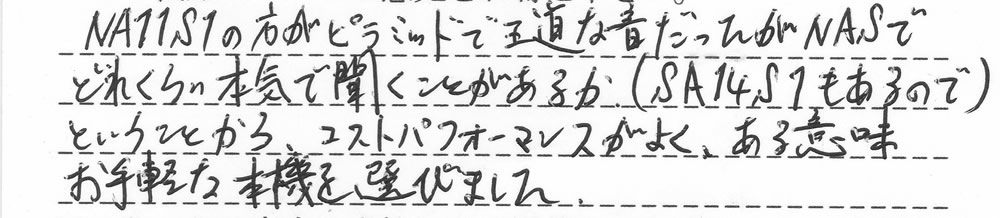 NA11S1の方がピラミッドで王道な音だったがNASで
どれくらい本気で聞くことがあるか(SA14S1もあるので)
ということから、コストパフォーマンスがよく、ある意味
お手軽な本機を選びました.